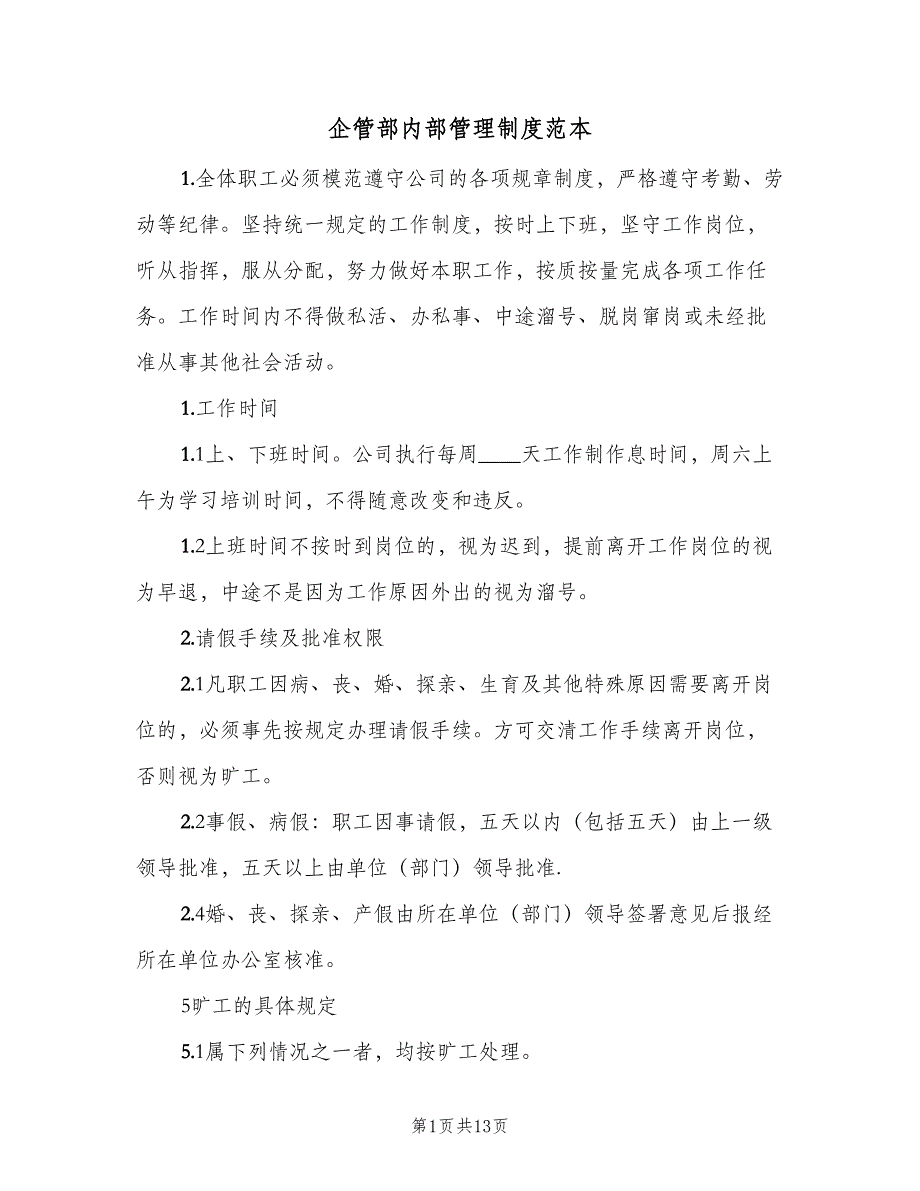 企管部内部管理制度范本
1.全体职工必须模范遵守公司的各项规章制度，严格遵守考勤、劳
动等纪律。坚持统一规定的工作制度，按时上下班，坚守工作岗位，
听从指挥，服从分配，努力做好本职工作，按质按量完成各项工作任
务。工作时间内不得做私活、办私事、中途溜号、脱岗窜岗或未经批
准从事其他社会活动。
1.工作时间
1.1上、下班时间。公司执行每周____天工作制作息时间，周六上
午为学习培训时间，不得随意改变和违反。
1.2上班时间不按时到岗位的，视为迟到，提前离开工作岗位的视
为早退，中途不是因为工作原因外出的视为溜号。
2.请假手续及批准权限
2.1凡职工因病、丧、婚、探亲、生育及其他特殊原因需要离开岗
位的，必须事先按规定办理请假手续。方可交清工作手续离开岗位，
否则视为旷工。
2.2事假、病假：职工因事请假，五天以内（包括五天）由上一级
领导批准，五天以上由单位（部门）领导批准.
2.4婚、丧、探亲、产假由所在单位（部门）领导签署意见后报经
所在单位办公室核准。
5旷工的具体规定
5.1属下列情况之一者，均按旷工处理。
第1页共13页